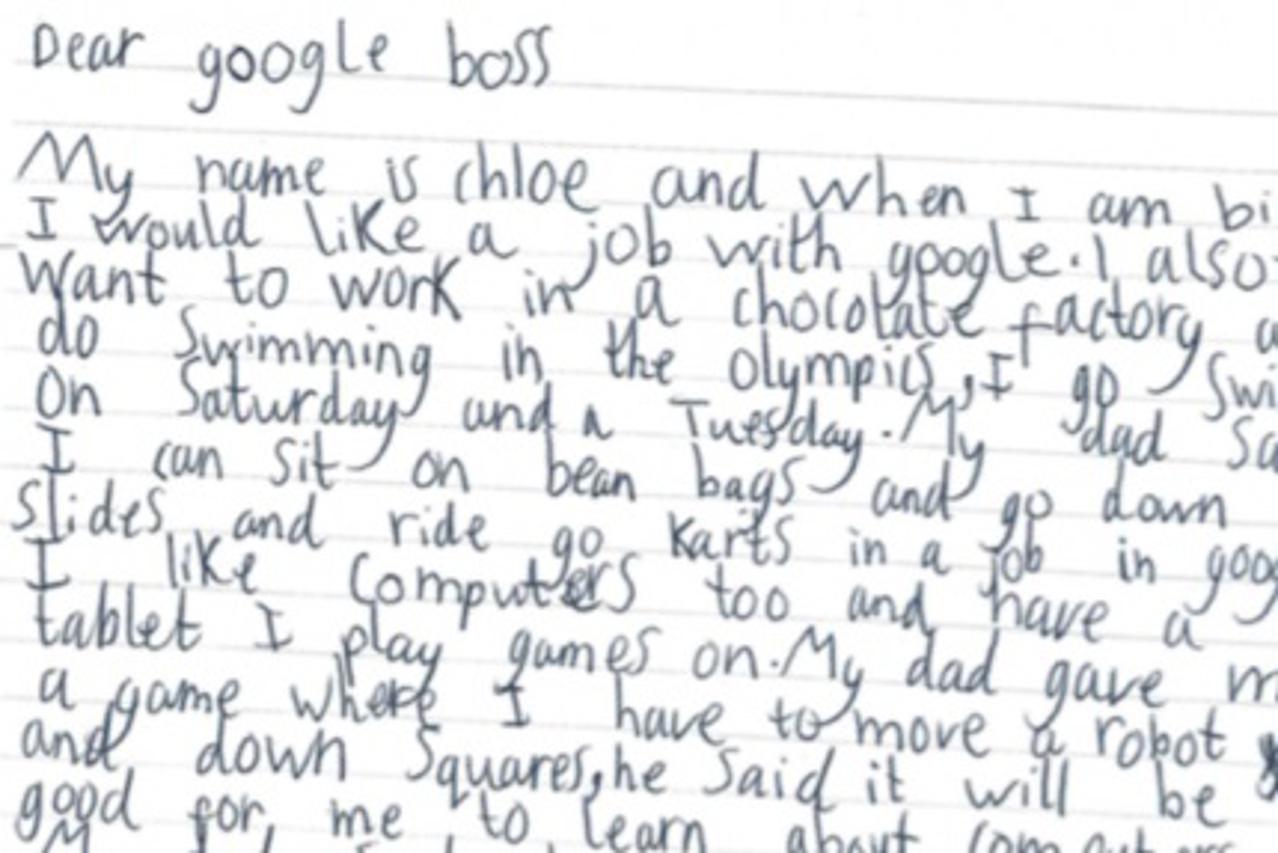 Dear google boss
My name is chloe and when I am bi
I would like a job with google. I also
want to work in a chocolate factory a
do Swimming in the olympics, I go Swi
on Saturday and a Tuesday. My dad Sa
I can sit on bean bags and go down
slides and ride go karts in a job in goog
I like computers too and have a
tablet I play games on. My dad gave m
a game where I have to move a robot
and down Squares, he Said it will be
good for me to learn about computers